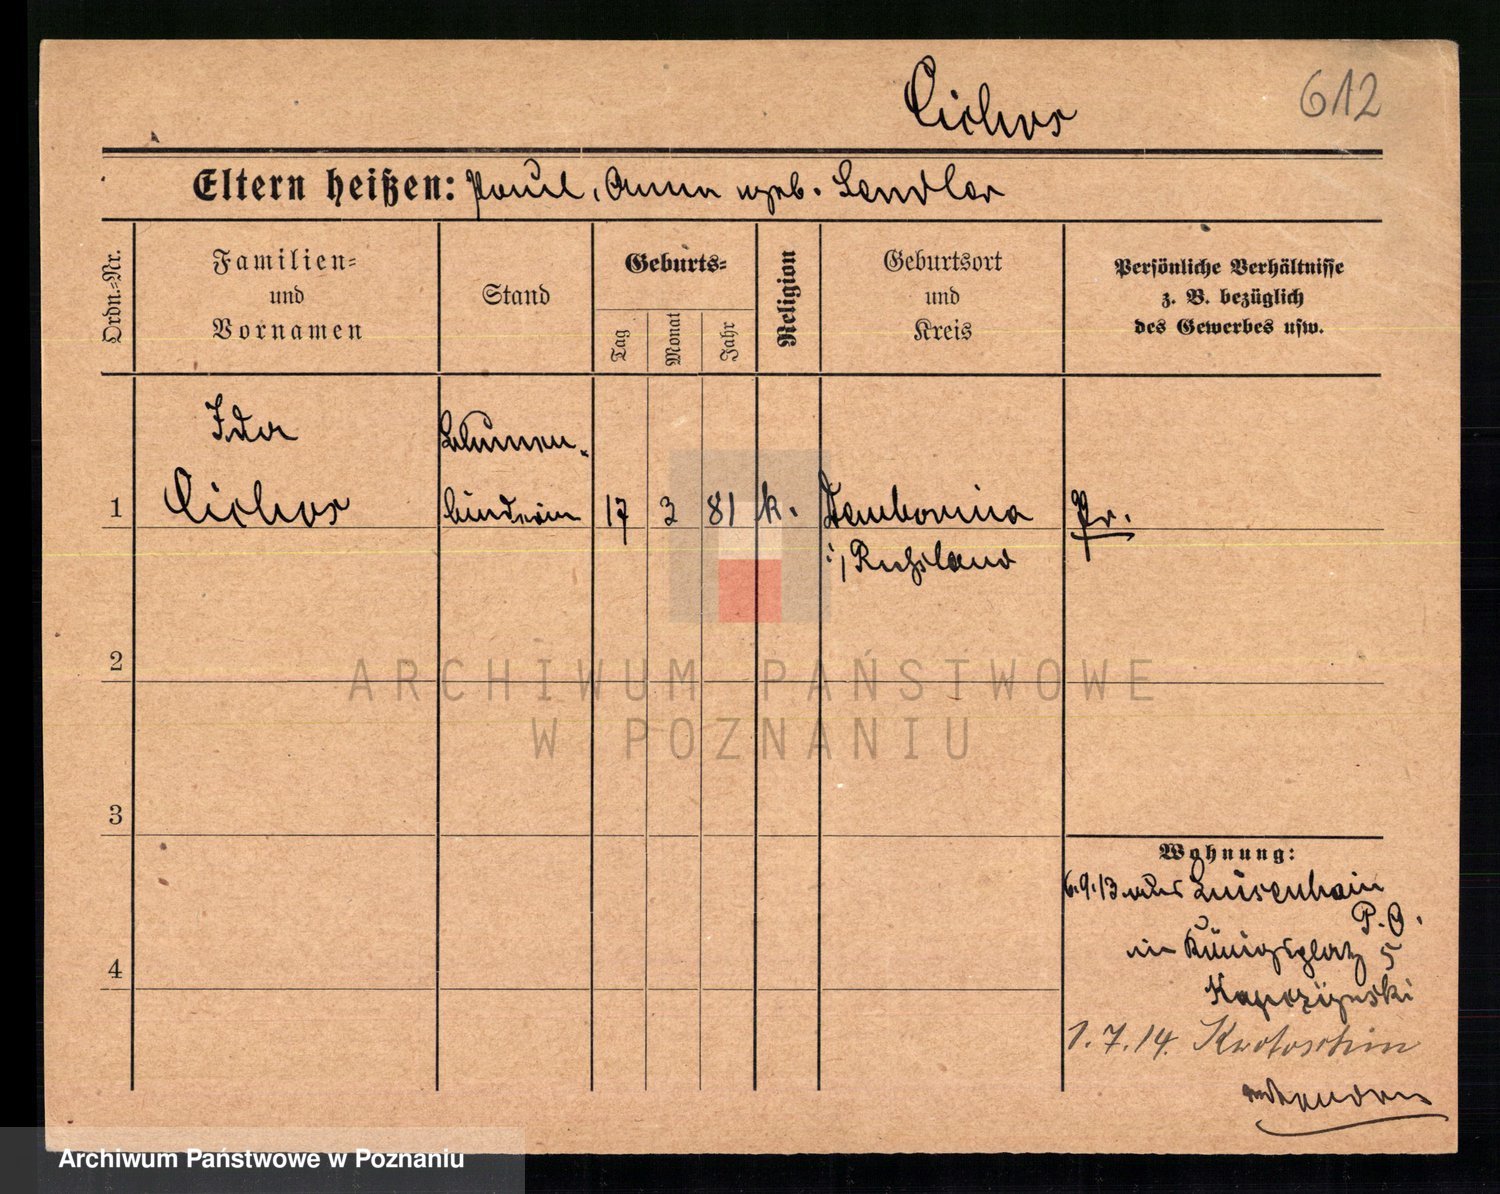 Cichos
612
Eltern heißen: Paul, Anna geb. Sendler
Ordn.-Nr.
Familien-
und
Vornamen
Stand
Geburts-
Tag
Monat
Jahr
Religion
Geburtsort
und
Kreis
Persönliche Verhältnisse
z. B. bezüglich
des Gewerbes usw.
Ida
Blumen-
1 Cichos binderin 17 3 81 k. Dembowina Pr.
i/ Russland
2
3
4
Wohnung:
6.9.13 aus Luisenhain
P.O.
in Königsplatz 5
1.7.14. Krotoschin
ARCHIWUM PAŃSTWOWE
W POZNANIU
Archiwum Państwowe w Poznaniu